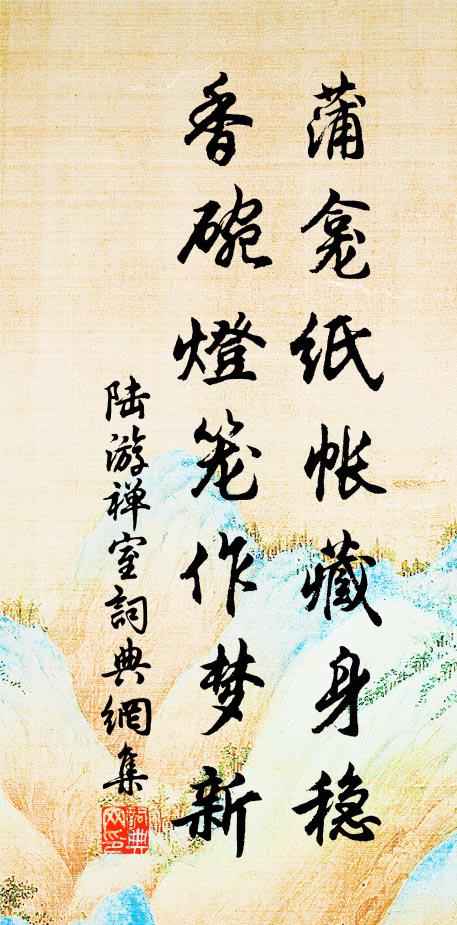 蒲龛纸帐藏身稳
香碗燈笼作梦新
陆游禅室詞典網集
詞典